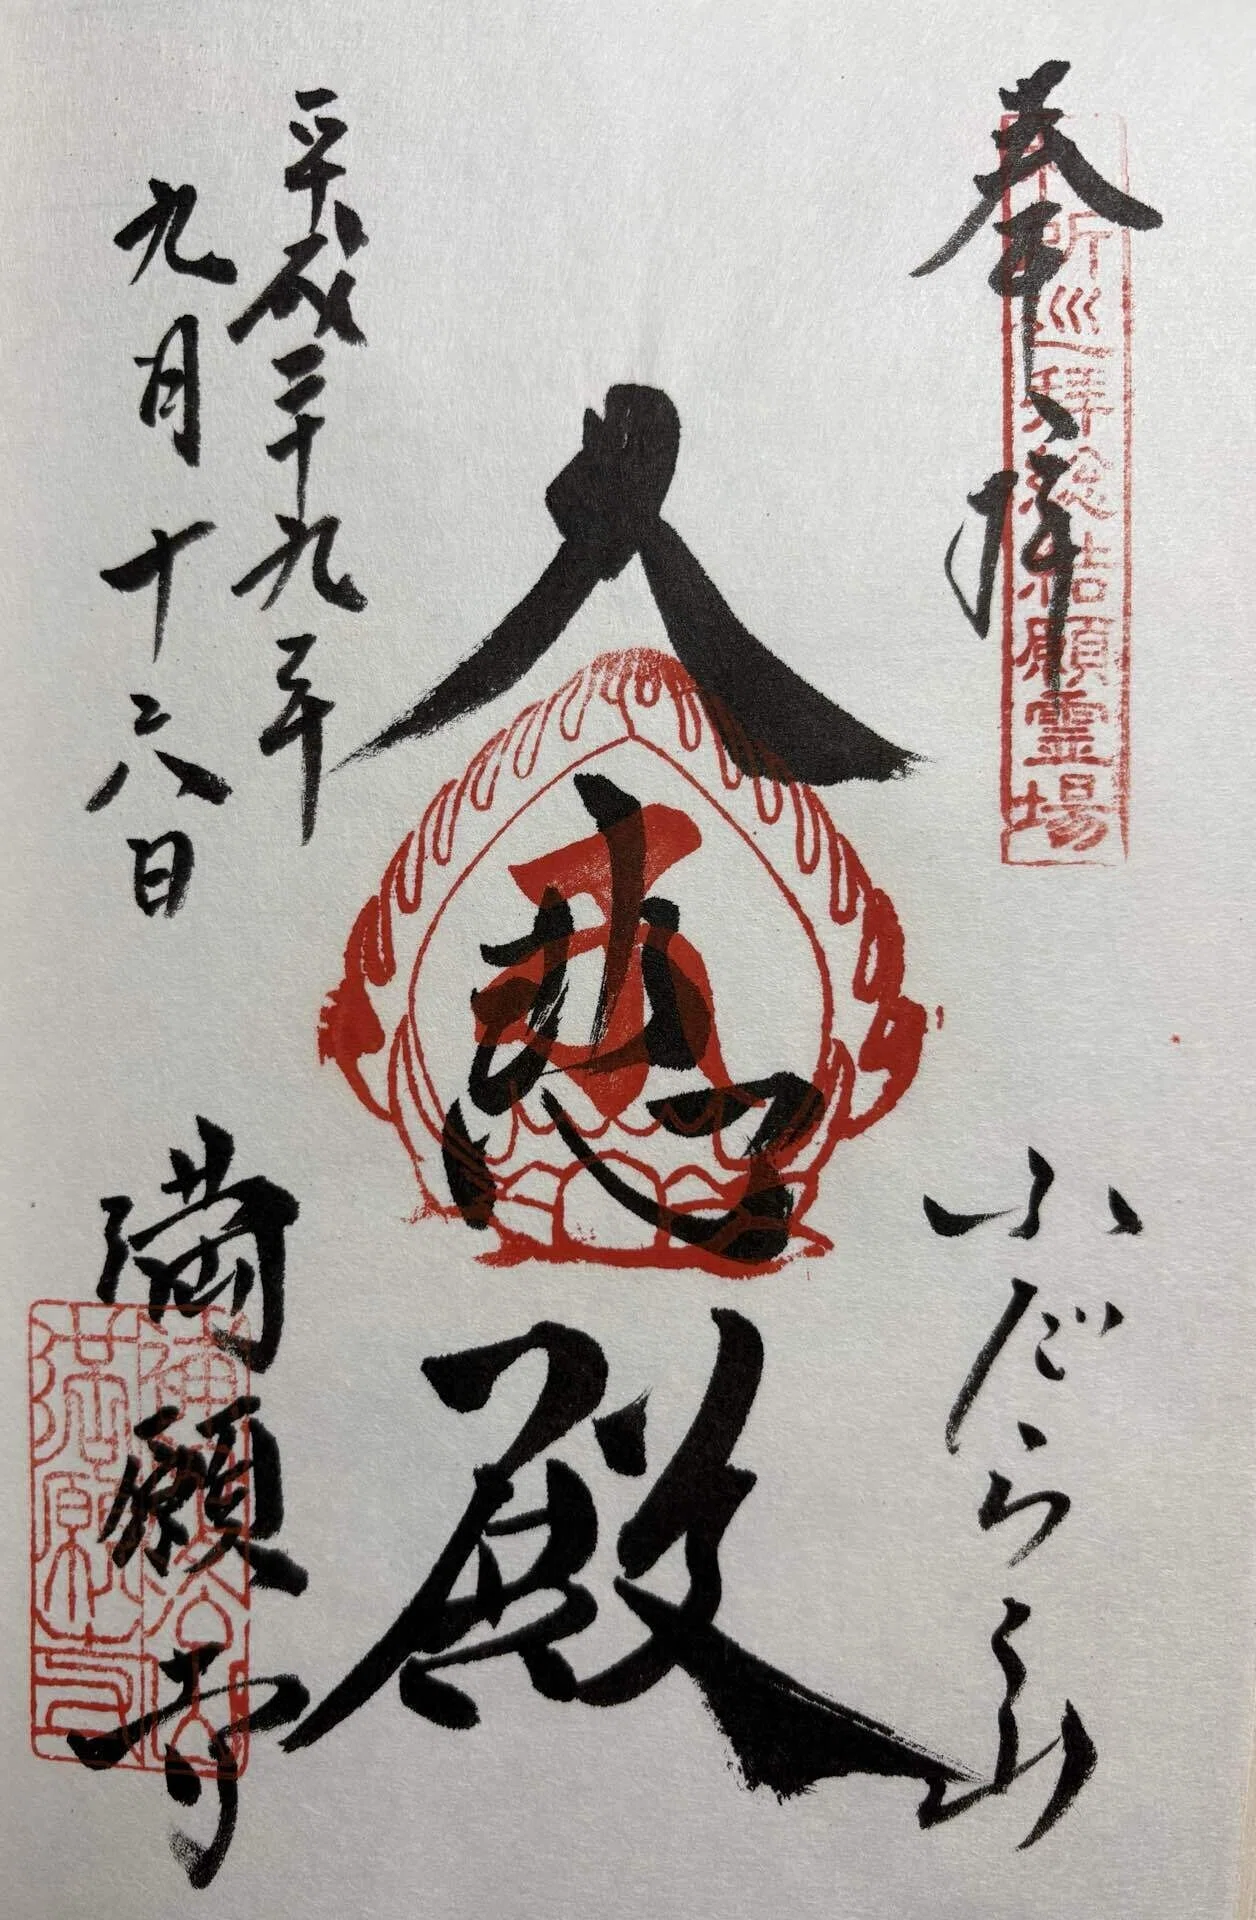 奉拝
ヶ所巡拝総結願霊場
ふだらく山
大悲殿
平成二十九年
九月十六日
満願寺